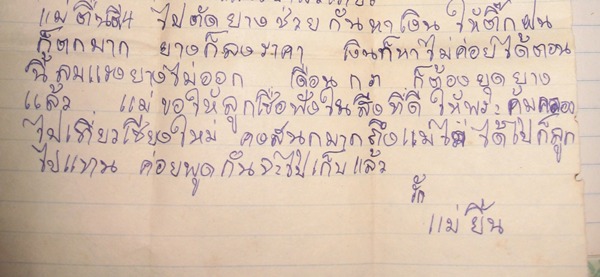 แม่ตื่นตี4 ไปตัดยางช่วยกันหาเงิน ให้ตึก ฝน
ก็ตกมาก ยางก็ลงราคา เงินก็หาไม่ค่อยได้ตอน
นี้ ลมแรงยางไม่ออก เดือน กา ก็ต้องหยุดยาง
แล้ว แม่ขอให้ลูกเชื่อฟังในสิ่งที่ดี ให้พระคุ้มครอง
ไปเที่ยวเชียงใหม่ คงสนุกมากถึงแม่ไม่ได้ไปก็ลูก
ไปแทน ค่อยพูดกันจะไปเก็บแล้ว
รัก
แม่ ยืน